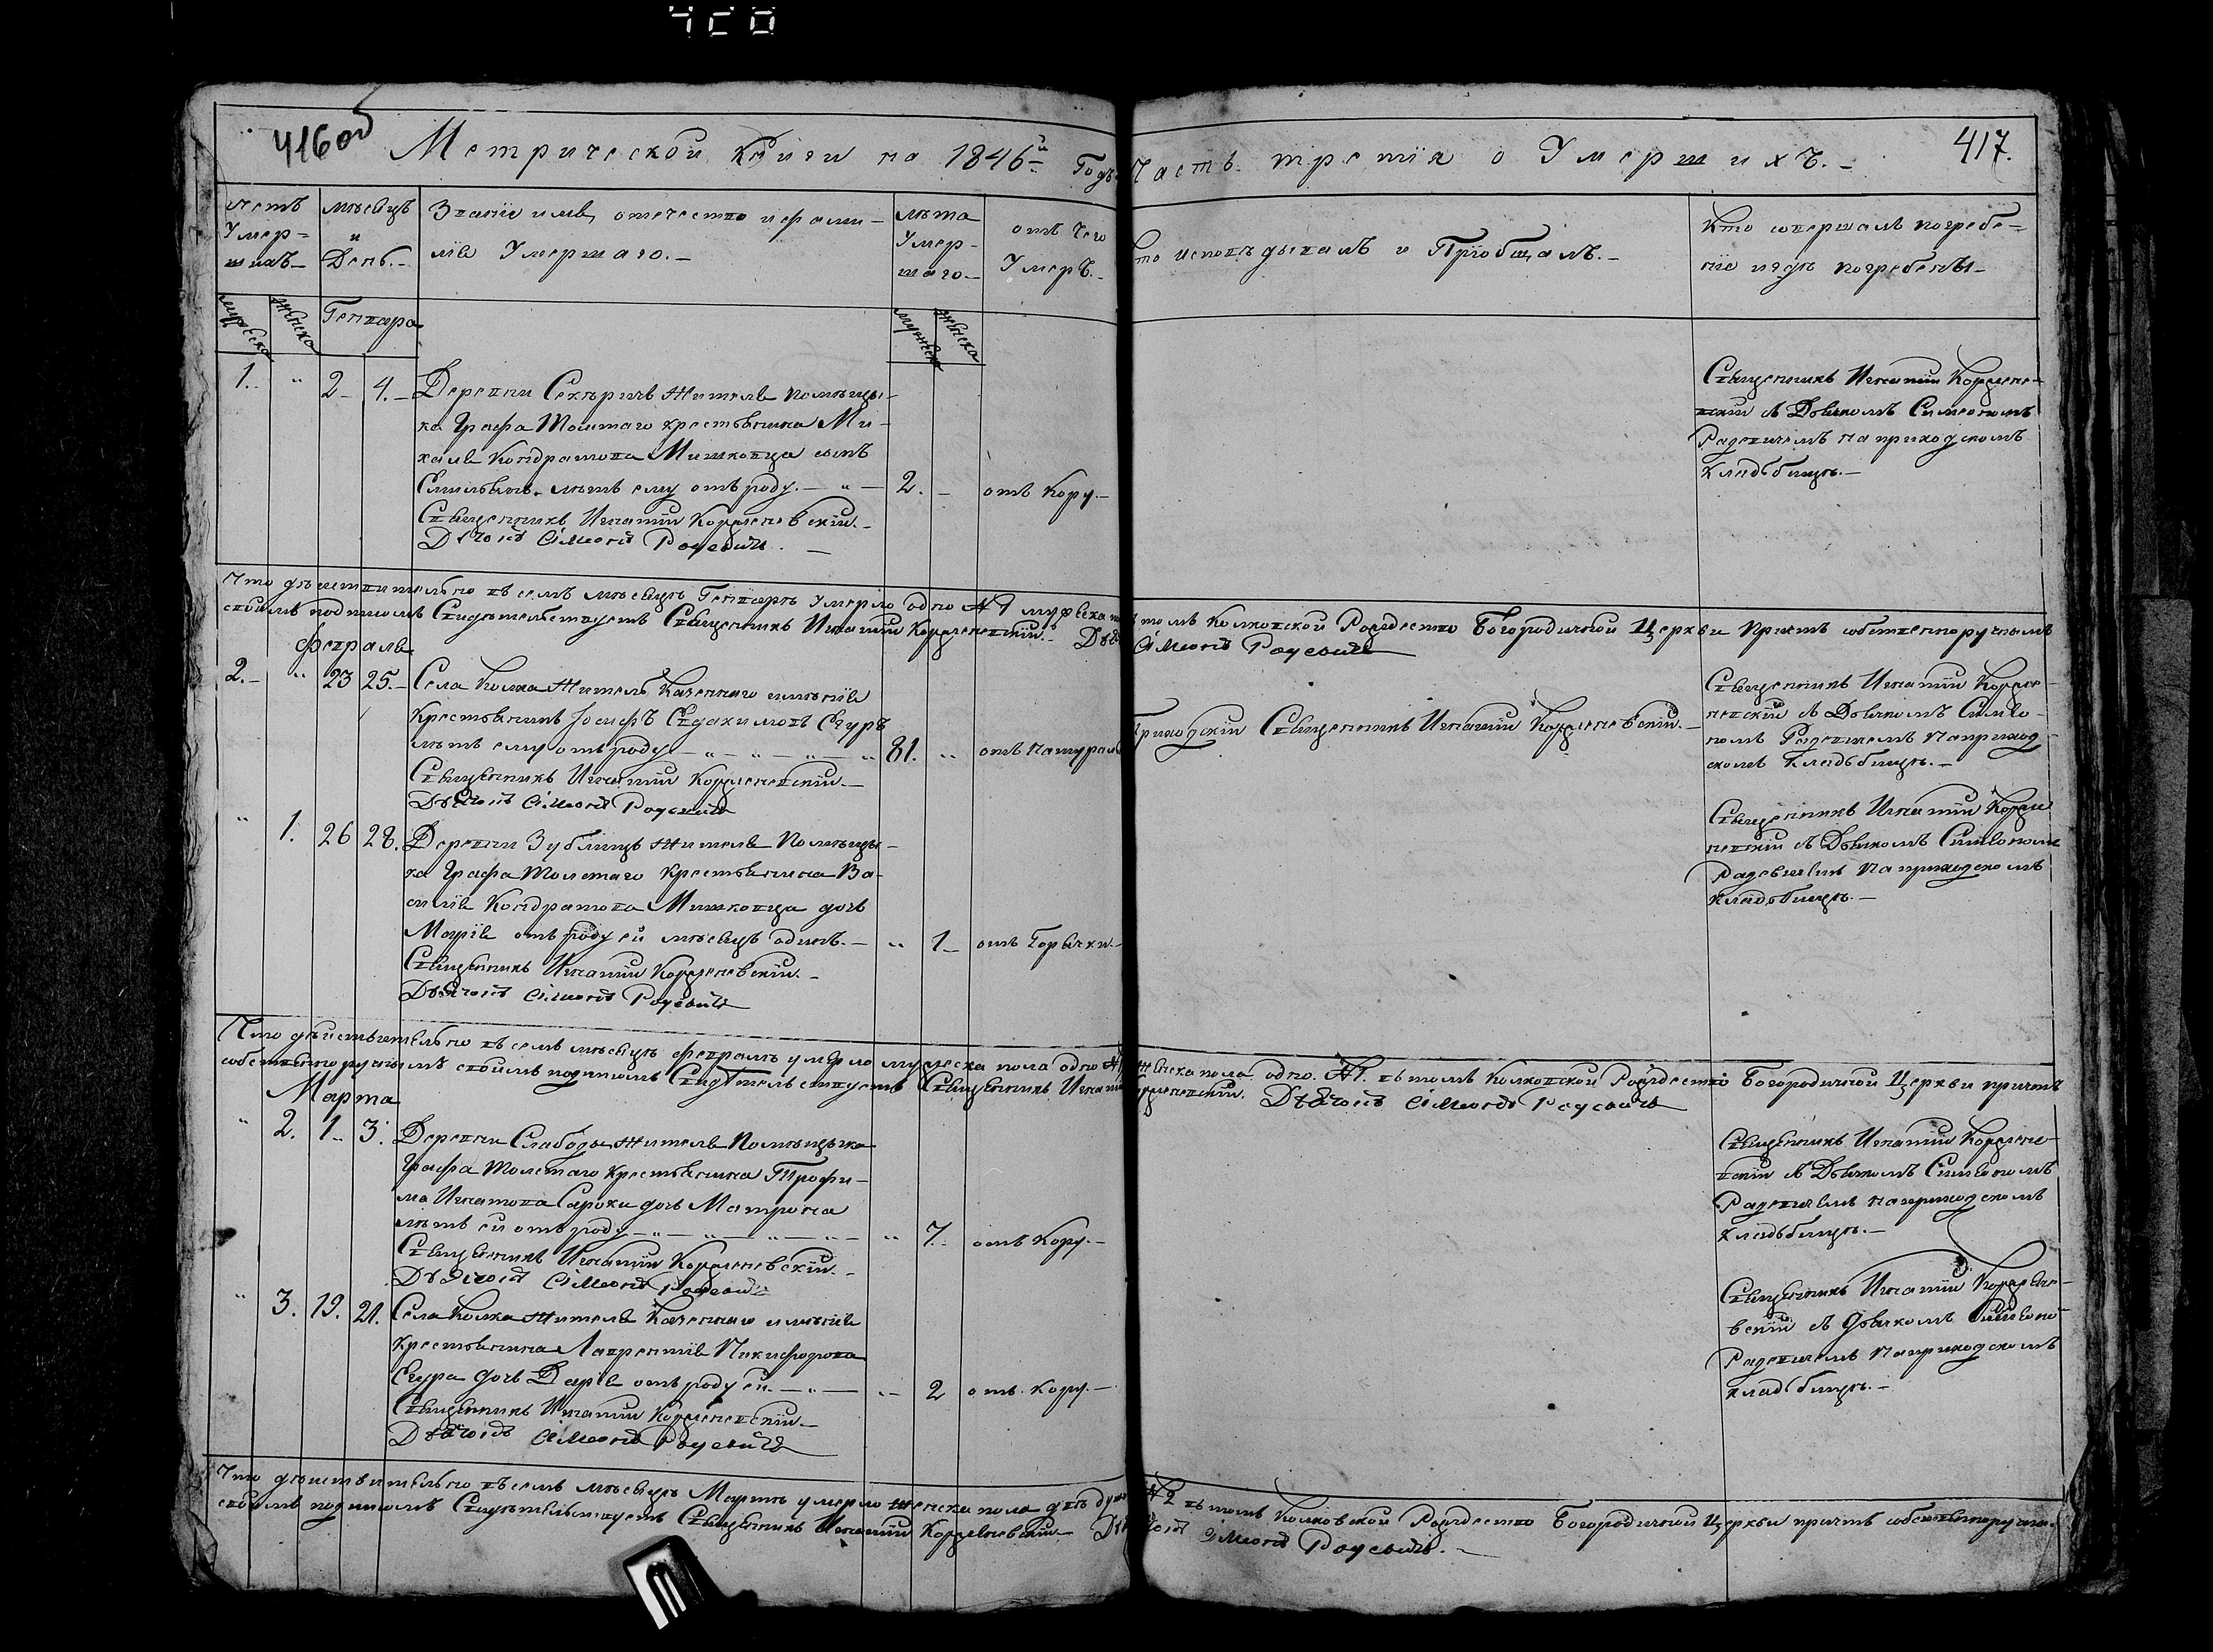 420
416 об
Метрической Книги на 1846й Годъ Часть третія о Умершихъ.
417.
счетъ Умершихъ
мѣсяцъ и День.
Званіе имя, отечество и фамилія Умершаго.
лѣта Умершаго.
отъ чего Умеръ.
кто исповѣдывалъ и Пріобщалъ.
Кто совершалъ погребеніе и гдѣ погребены
мужеска
женска
Генваря
мужеска
женска
1. " 2 4. Деревни Секѣричь жителя помѣщи-
ка Графа Толстаго крестьянина Ми-
хаила Кондратова Мишковца сынъ
Емильянъ. лѣтъ ему отъ роду. 2. отъ Кору.
Священникъ Игнатій Корженевскій.
Дьячокъ Симеонъ Радевичъ.
Священникъ Игнатій Коржене-
вскій съ Дьячкомъ Симеономъ
Радевичемъ на приходскомъ
кладьбищѣ.
Что дѣйствительно въ семъ мѣсяцѣ Генварѣ умерло одно № 1 мужеска въ томъ Колковской Рождество Богородичной Церкви причтъ собственноручнымъ
своимъ подписомъ Свидѣтельствуетъ Священникъ Игнатій Корженевскій. Дьячокъ Симеонъ Радевичъ
Февраля
2. " 23 25. Села Колка житель Казеннаго имѣнія
Крестьянинъ Іосифъ Евдокимовъ Сгуръ
лѣтъ ему отъ роду 81. " отъ натурал
Священникъ Игнатій Корженевскій.
Дьячокъ Симеонъ Радевичъ
Приходскій Священникъ Игнатій Корженевскій.
Священникъ Игнатій Корже-
невскій съ Дьячкомъ Симео-
номъ Радевичемъ на приход-
скомъ кладьбищѣ.
" 1. 26 28. Деревни Зублищъ жителя Помѣщи-
ка Графа Толстаго Крестьянина Ва-
силія Кондратова Мишковца дочь
Марія отъ роду ей мѣсяцъ одинъ. " 1 отъ Горячки.
Священникъ Игнатій Корженевскій.
Дьячокъ Симеонъ Радевичъ
Священникъ Игнатій Корже-
невскій съ Дьячкомъ Симеономъ
Радевичемъ на приходскомъ
кладьбищѣ.
Что дѣйствительно въ семъ мѣсяцѣ Февралѣ умерло мужеска пола одно № женска пола одно № 1. въ томъ Колковской Рождество Богородичной Церкви причтъ
собственноручнымъ своимъ подписомъ Свидѣтельствуетъ Священникъ Игнатій Корженевскій. Дьячокъ Симеонъ Радевичъ
Марта
" 2. 1 3. Деревни Слободы жителя Помѣщика
Графа Толстаго крестьянина Трофи-
ма Игнатова Сароки дочь Матрона
лѣтъ ей отъ роду " 7. отъ Кору.
Священникъ Игнатій Корженевскій.
Дьячокъ Симеонъ Радевичъ
Священникъ Игнатій Коржене-
вскій съ Дьячкомъ Симеономъ
Радевичемъ на приходскомъ
кладьбищѣ.
" 3. 19. 21. Села Колка жителя Казеннаго имѣнія
крестьянина Лаврентія Никифорова
Сгура дочь Дарія отъ роду ей. " 2 отъ Кору.
Священникъ Игнатій Корженевскій.
Дьячокъ Симеонъ Радевичъ
Священникъ Игнатій Коржене-
вскій съ дьячкомъ Симеоно
Радевичемъ на приходскомъ
кладбищѣ.
Что дѣйствительно въ семъ мѣсяцѣ Мартѣ умерло женска пола двѣ душ № 2 въ томъ Колковской Рождество Богородичной Церкви причтъ собственноручным
своимъ подписомъ Свидѣтельствуетъ Священникъ Игнатій Корженевскій Дьячокъ Симеонъ Радевичъ.